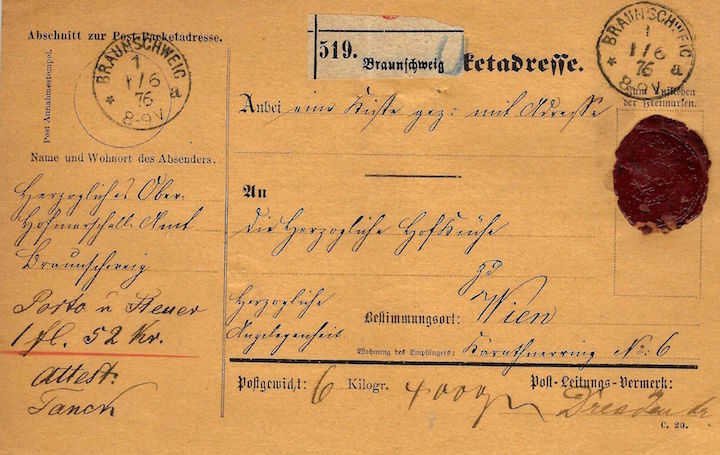 Abschnitt zur Post-Packetadresse.
Post-Annahmestempel.
BRAUNSCHWEIG
1
1/6
76
8-9V
* a
Name und Wohnort des Absenders.
Herzogliches Ober-
Hofmarschall-Amt
Braunschweig
Porto u Steuer
1 fl. 52 Kr.
attest:
519.
Braunschweig
ketadresse.
BRAUNSCHWEIG
1
1/6
76
8-9V
* a
Zum Aufkleben
der Freimarken.
Anbei eine Kiste gez: mit Adresse
An
die Herzogliche Hofküche
zu
Wien
Herzogliche
Angelegenheit
Bestimmungsort:
Wohnung des Empfängers: Kärnthnerring No: 6
Postgewicht: 6 Kilogr. 400 g
Post-Leitungs-Vermerk:
Dresden
C. 20.